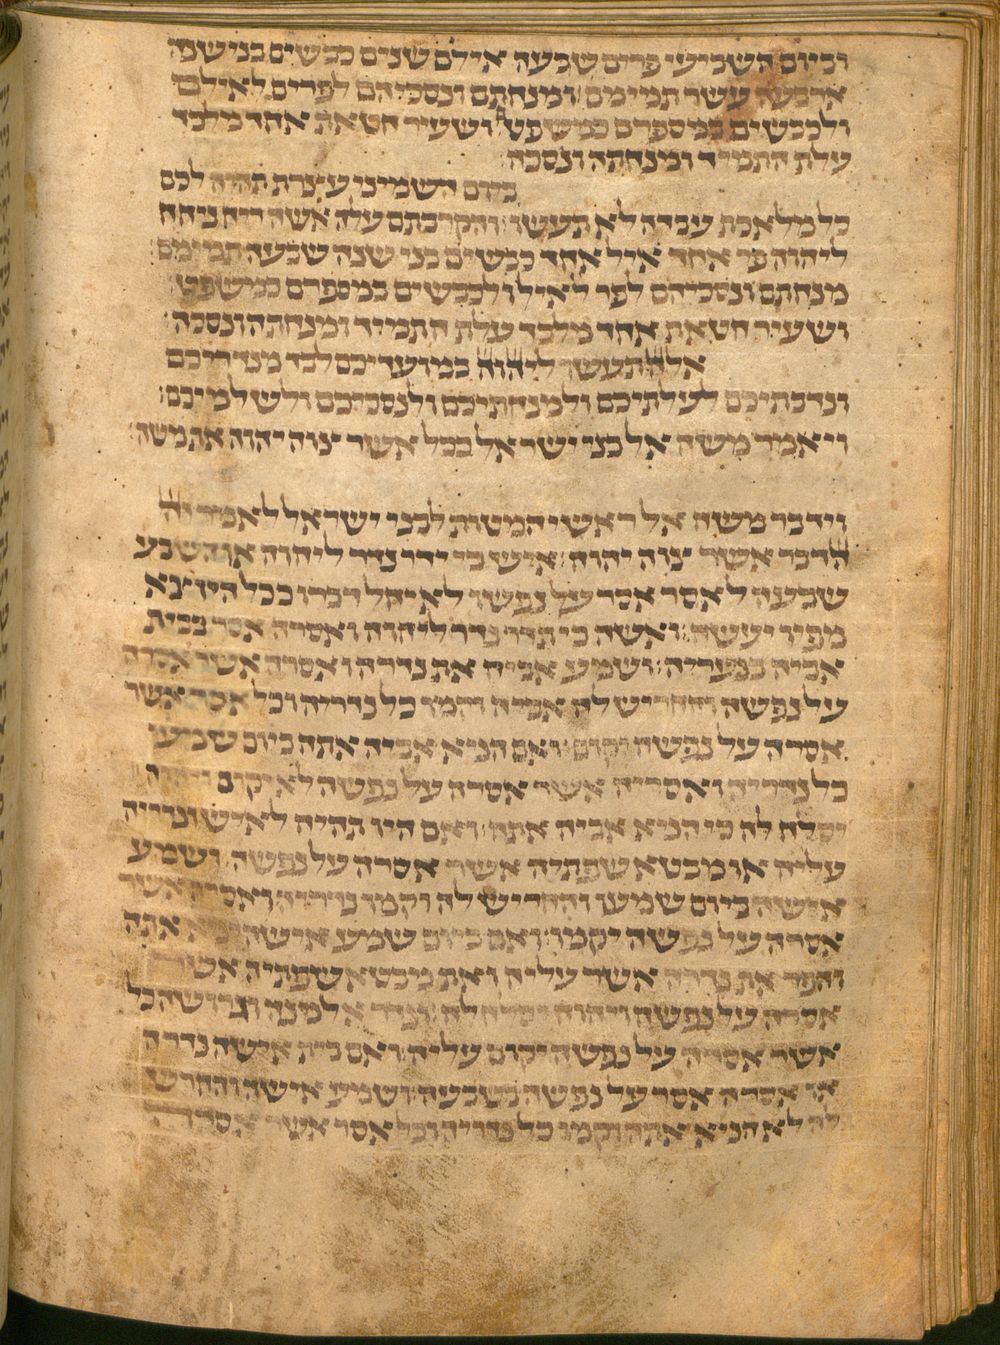 וביום השביעי פרים שבעה אילם שנים כבשים בני שנה
ארבעה עשר תמימם ומנחתם ונסכיהם לפרים לאילם
ולכבשים במספרם כמשפטם ושעיר חטאת אחד מלבד
עלת התמיד ומנחתה ונסכה
ביום השמיני עצרת תהיה לכם
כל מלאכת עבדה לא תעשו והקרבתם עלה אשה ריח ניחח
ליהוה פר אחד איל אחד כבשים בני שנה שבעה תמימם
מנחתם ונסכיהם לפר לאיל ולכבשים במספרם כמשפט
ושעיר חטאת אחד מלבד עלת התמיד ומנחתה ונסכה
אלה תעשו ליהוה במועדיכם לבד מנדריכם
ונדבתיכם לעלתיכם ולמנחתיכם ולנסכיכם ולשלמיכם
ויאמר משה אל בני ישראל ככל אשר צוה יהוה את משה
וידבר משה אל ראשי המטות לבני ישראל לאמר זה
הדבר אשר צוה יהוה איש כי ידר נדר ליהוה או השבע
שבעה לאסר אסר על נפשו לא יחל דברו ככל היצא
מפיו יעשה ואשה כי תדר נדר ליהוה ואסרה אסר בבית
אביה בנעריה ושמע אביה את נדרה ואסרה אשר אסרה
על נפשה והחריש לה אביה וקמו כל נדריה וכל אסר אשר
אסרה על נפשה יקום ואם הניא אביה אתה ביום שמעו
כל נדריה ואסריה אשר אסרה על נפשה לא יקום ויהוה
יסלח לה כי הניא אביה אתה ואם היו תהיה לאיש ונדריה
עליה או מבטא שפתיה אשר אסרה על נפשה ושמע
אישה ביום שמעו והחריש לה וקמו נדריה ואסריה אשר
אסרה על נפשה יקמו ואם ביום שמע אישה יניא אתה
והפר את נדרה אשר עליה ואת מבטא שפתיה אשר
אסרה על נפשה ויהוה יסלח לה ונדר אלמנה וגרושה כל
אשר אסרה על נפשה יקום עליה ואם בית אישה נדרה
או אסרה אסר על נפשה בשבעה ושמע אישה והחרש
לה לא הניא אתה וקמו כל נדריה וכל אסר אשר אסרה